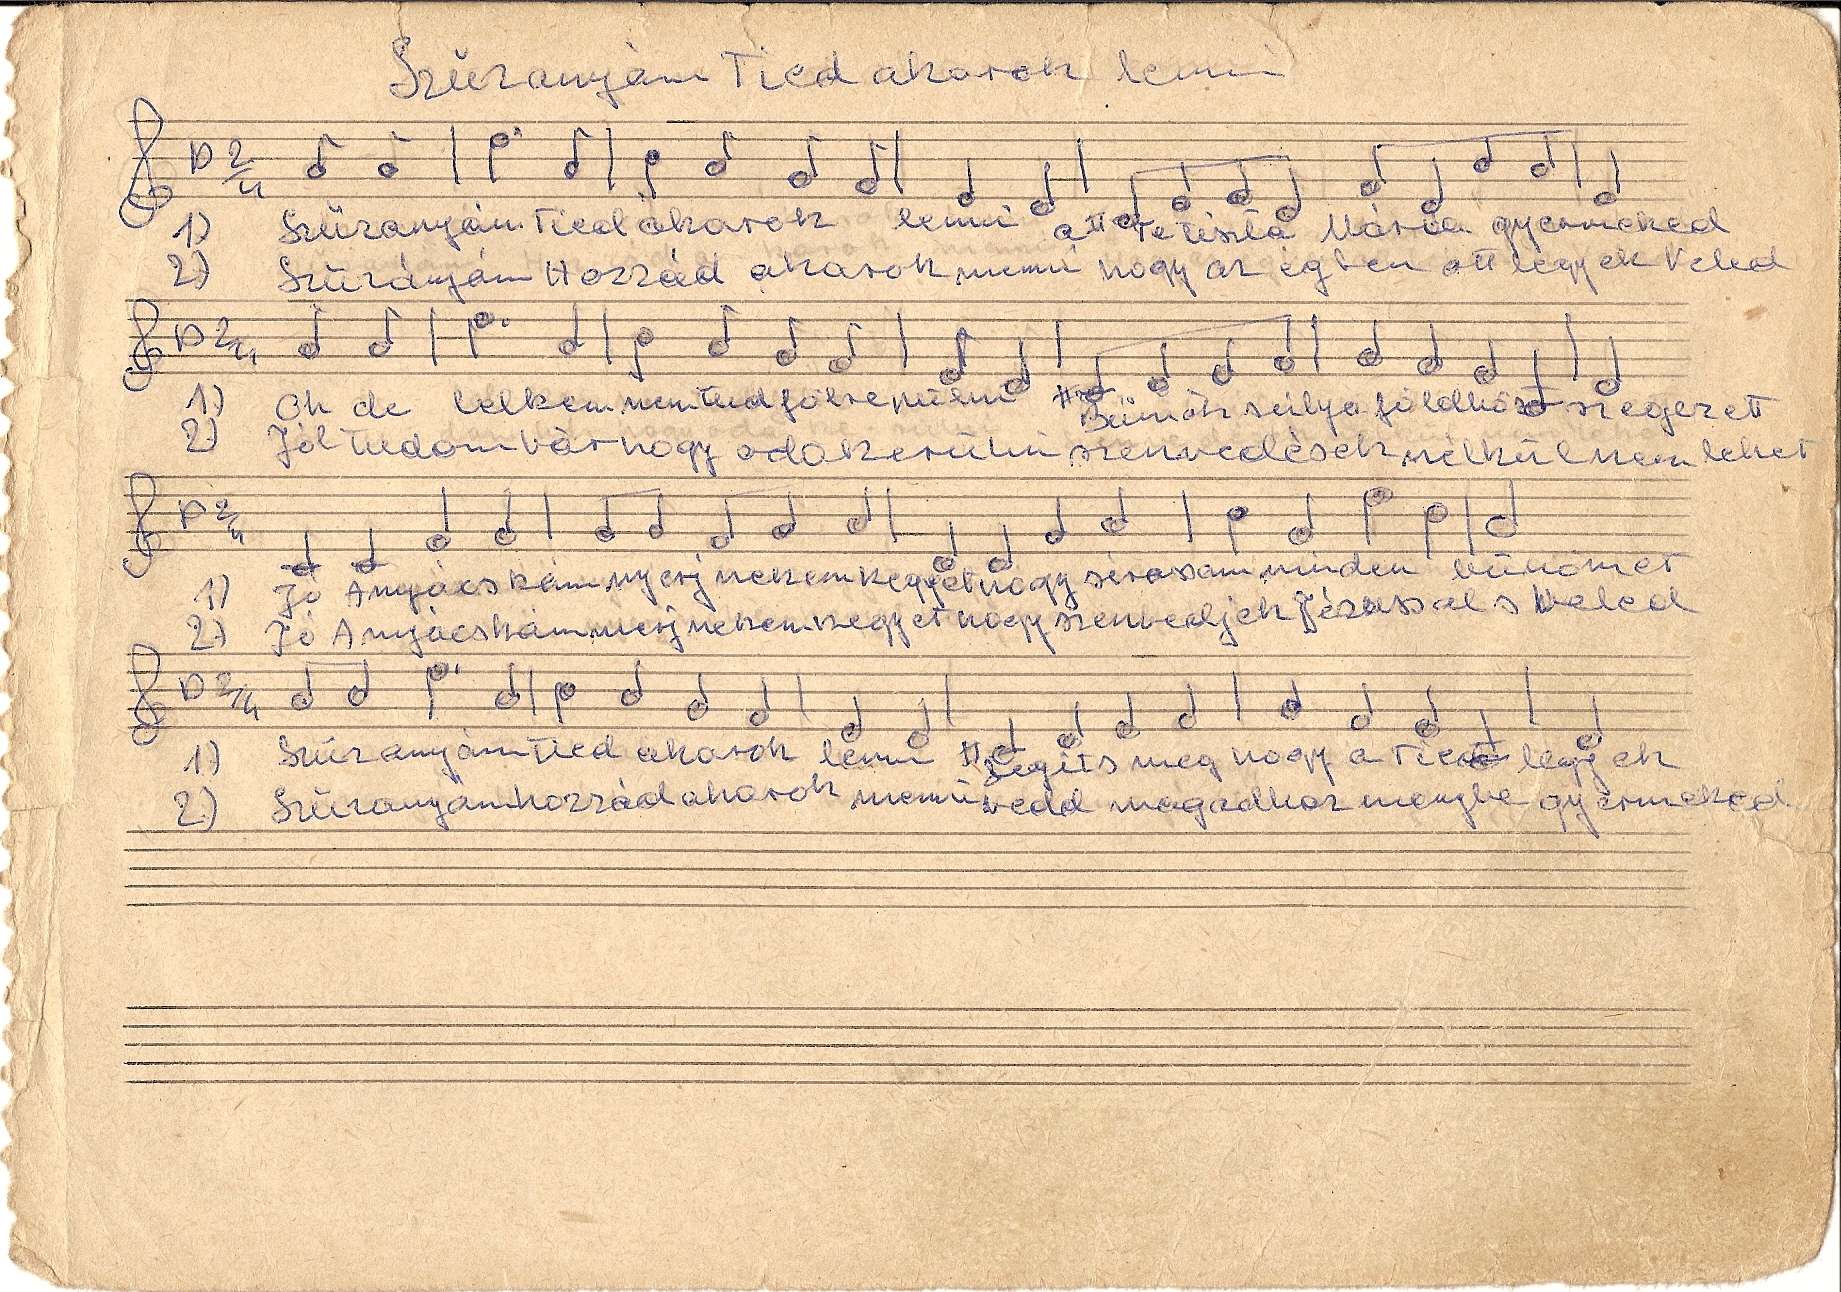 Szűzanyám Tied akarok lenni
D 2/4
1) Szűzanyám Tied akarok lenni a Te tiszta Mária gyermeked
2) Szűzányám Hozzád akarok menni hogy az égben ott legyek Veled
D 2/4
1) Oh de lelkem nem tud fölrepülni Bűnök súlya földhöz szegezett
2) Jól tudom bár hogy oda kerülni szenvedések nélkül nem lehet
D 2/4
1) Jó Anyácskám nyerj nekem kegyet hogy sirassam minden bűnömet
2) Jó Anyácskám nyerj nekem kegyet hogy szenvedjek Jézussal s Veled
D 2/4
1) Szűzanyám Tied akarok lenni Segíts meg hogy a Tied legyek
2) Szűzanyám hozzád akarok menni vedd magadhoz menybe gyermeked